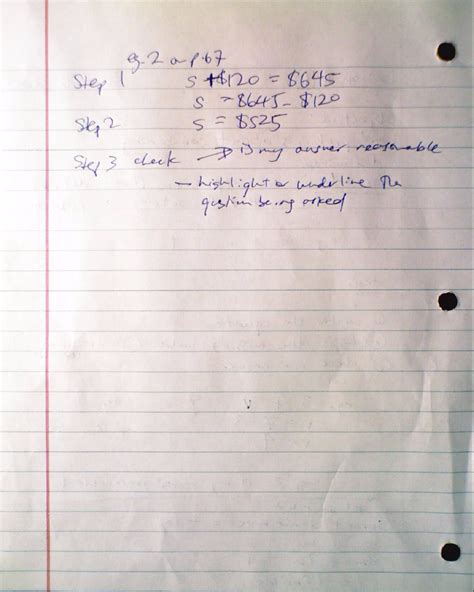 eg. 2 on p. 67
Step 1 S + $120 = $645
S = $645 - $120
Step 2 S = $525
Step 3 check → is my answer reasonable
- highlight or underline the
question being asked